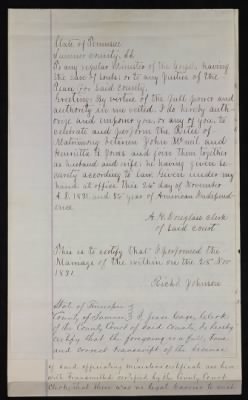 State of Tennessee
Sumner County, SS
To any regular Minister of the Gospel having
the care of Souls or to any Justice of the
Peace for said County.
Greeting: By virtue of the full power and
authority in me vested, I do hereby auth-
orize and empower you, or any of you to
celebrate and perform the Rites of
Matrimony between John
Henrietta and join them together
as husband and wife; he having given se-
curity according to law. Given under my
hand at office this 24th day of November
A.D. 1831 and year of American Independ-
ence.
A. H. Douglass clerk
of said court
This is to certify that I performed the
Marriage of the within on the 28th Nov
1831
Richd Johnson
State of Tennessee
County of Sumner I, Clerk
of the County Court of said County do hereby
certify that the foregoing is a full, true
and correct transcript of the license
of said officiating ministers certificate as here
with transmitted certified by the County Court
Clerk, that there was no legal barrier to such